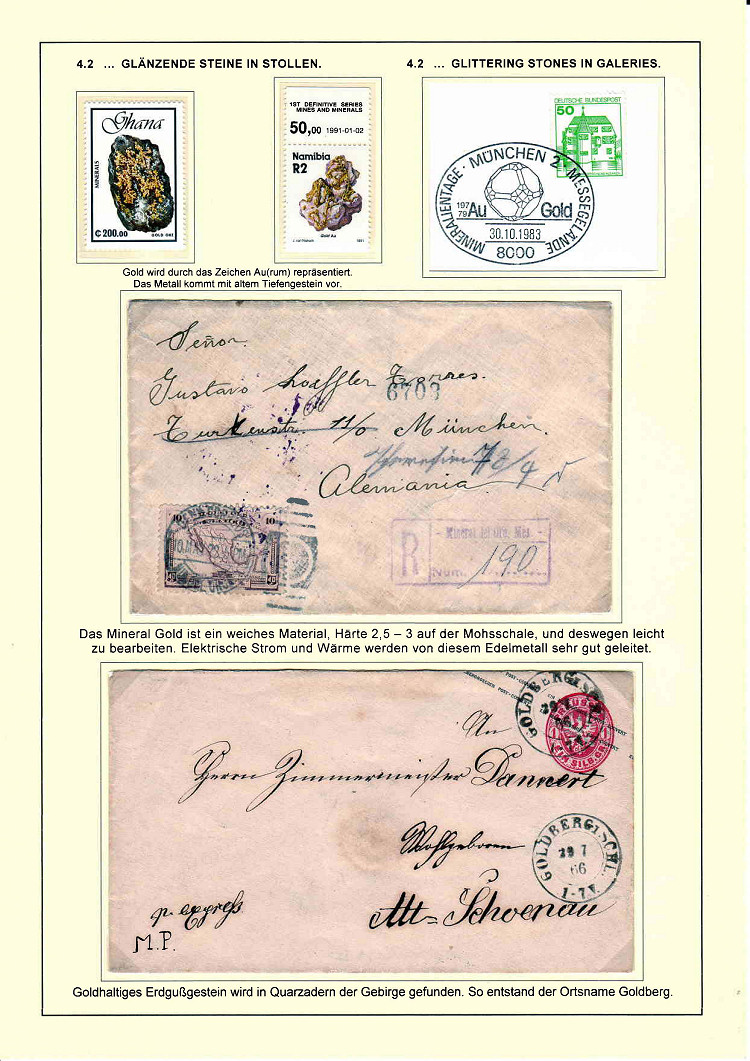 4.2 ... GLÄNZENDE STEINE IN STOLLEN.
4.2 ... GLITTERING STONES IN GALERIES.
Ghana
MINERALS
₵ 200.00
GOLD ORE
1ST DEFINITIVE SERIES
MINES AND MINERALS
50,00 1991-01-02
Namibia
R2
Gold Au
1991
DEUTSCHE BUNDESPOST
50
MINERALIENTAGE · MÜNCHEN 2 · MESSEGELÄNDE
197
79 Au Gold
30.10.1983
8000
Gold wird durch das Zeichen Au(rum) repräsentiert.
Das Metall kommt mit altem Tiefengestein vor.
Señor.
Gustavo Torres.
6703
Türkenstr. 11/0 München.
Alemania
10 10
R
- Mineral del Oro, Mex. -
Num. 190
Das Mineral Gold ist ein weiches Material, Härte 2,5 – 3 auf der Mohsschale, und deswegen leicht
zu bearbeiten. Elektrische Strom und Wärme werden von diesem Edelmetall sehr gut geleitet.
GOLDBERG I SCHL.
29 7
66
EIN SILB. GR.
An
Herrn Zimmermeister Dannert
Wohlgeboren
GOLDBERG I SCHL.
29 7
66
1-7 V.
p. expreß
Alt-Schoenau
M.P.
Goldhaltiges Erdgußgestein wird in Quarzadern der Gebirge gefunden. So entstand der Ortsname Goldberg.